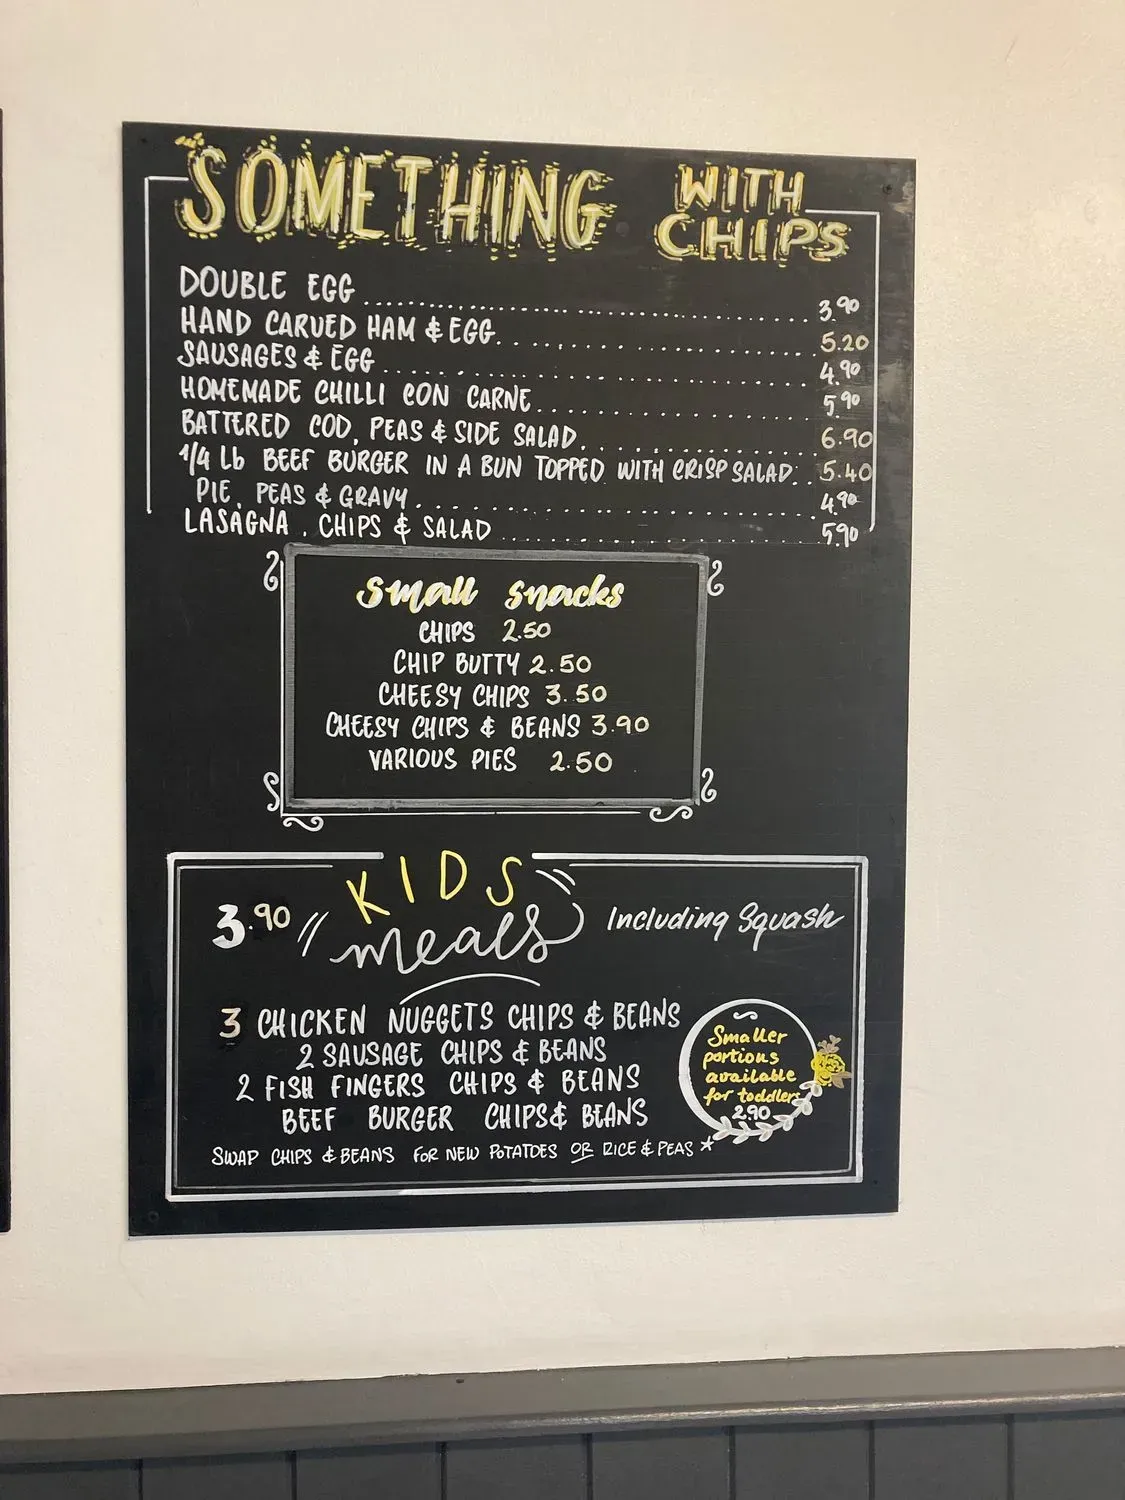 SOMETHING WITH CHIPS
DOUBLE EGG 3.90
HAND CARVED HAM & EGG 5.20
SAUSAGES & EGG 4.90
HOMEMADE CHILLI CON CARNE 5.90
BATTERED COD, PEAS & SIDE SALAD 6.90
1/4 Lb BEEF BURGER IN A BUN TOPPED WITH CRISP SALAD 5.40
PIE, PEAS & GRAVY 4.90
LASAGNA, CHIPS & SALAD 5.90
Small snacks
CHIPS 2.50
CHIP BUTTY 2.50
CHEESY CHIPS 3.50
CHEESY CHIPS & BEANS 3.90
VARIOUS PIES 2.50
3.90 // KIDS meals Including Squash
3 CHICKEN NUGGETS CHIPS & BEANS
2 SAUSAGE CHIPS & BEANS
2 FISH FINGERS CHIPS & BEANS
BEEF BURGER CHIPS & BEANS
SWAP CHIPS & BEANS FOR NEW POTATOES OR RICE & PEAS *
Smaller
portions
available
for toddlers
2.90